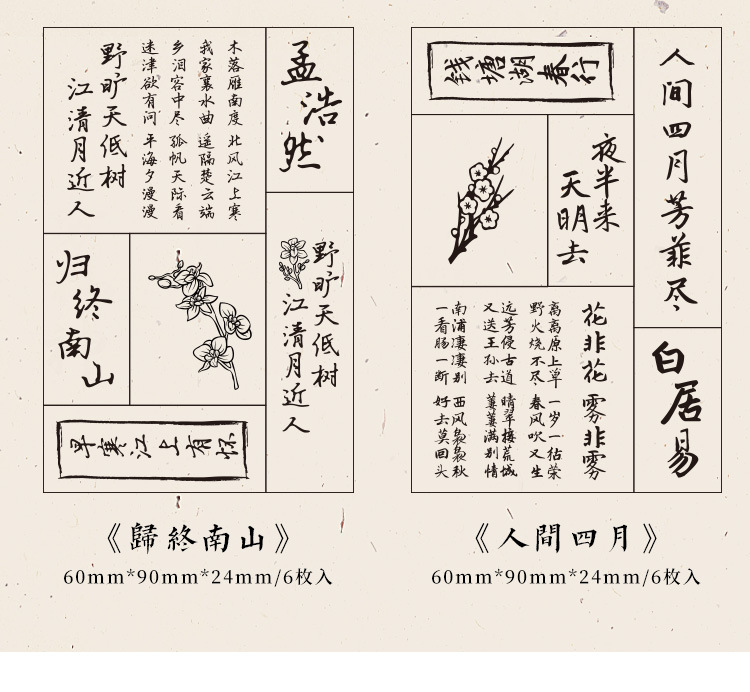 孟浩然
木落雁南度 北风江上寒
我家襄水曲 遥隔楚云端
乡泪客中尽 孤帆天际看
迷津欲有问 平海夕漫漫
野旷天低树
江清月近人
野旷天低树
江清月近人
归终南山
早寒江上有怀
《歸終南山》
60mm*90mm*24mm/6枚入
人间四月芳菲尽
钱塘湖春行
夜半来
天明去
白居易
花非花 雾非雾
离离原上草 一岁一枯荣
野火烧不尽 春风吹又生
远芳侵古道 晴翠接荒城
又送王孙去 萋萋满别情
南浦凄凄别 西风袅袅秋
一看肠一断 好去莫回头
《人間四月》
60mm*90mm*24mm/6枚入